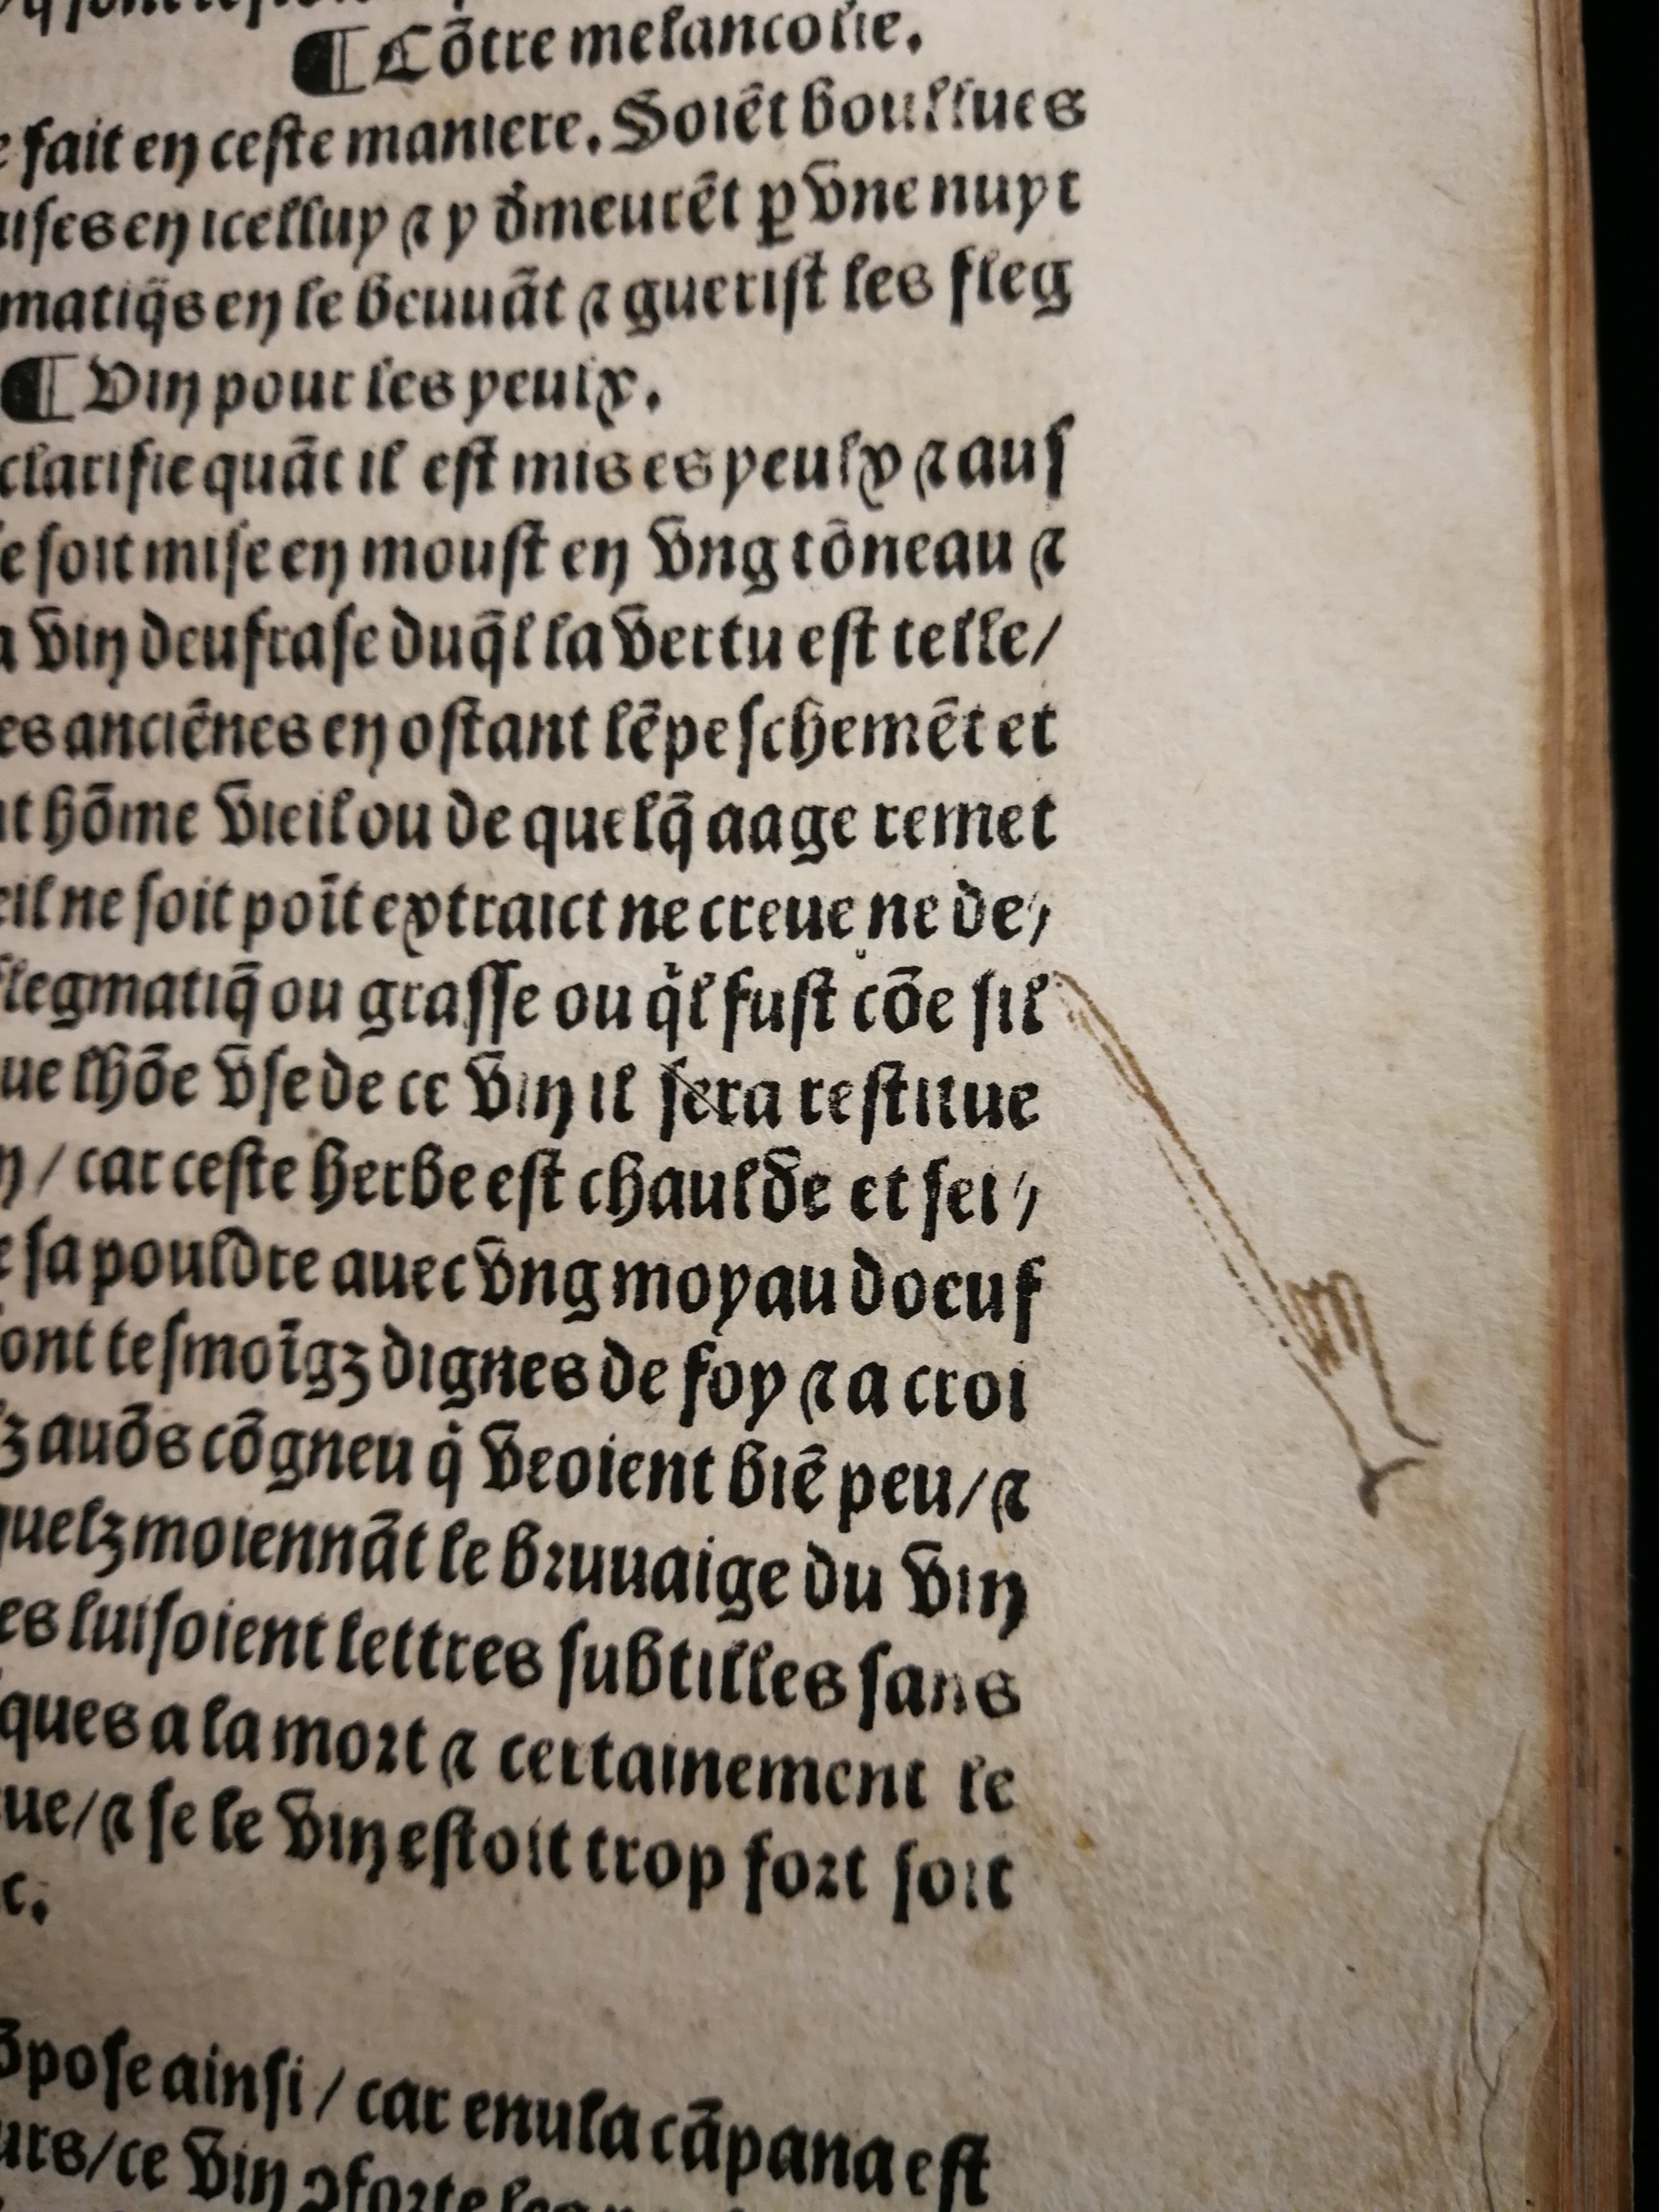 ¶ Cõtre melancolie.
fait en ceste maniere. Soiẽt boullues
en icelluy ⁊ y d̾meurẽt ꝑ vne nuyt
matiq̃s en le beuuãt ⁊ guerist les fleg
¶ Vin pour les yeulx.
clarifie quãt il est mis es yeulx ⁊ aus
soit mise en moust en vng tõneau ⁊
vin deufrase duq̃l la vertu est telle/
anciẽnes en ostant lẽpeschemẽt et
hõme vieil ou de quelq̃ aage remet
ne soit poĩt extraict ne creue ne de⸗
flegmatiq̃ ou grasse ou q̾l fust cõe sil
lhõe vse de ce vin il sera restitue
/ car ceste herbe est chaulde et sei⸗
sa pouldre auec vng moyau doeuf
tesmoĩgz dignes de foy ⁊ a croi
auõs cõgneu q̾ veoient biẽ peu/ ⁊
moiennãt le bruuaige du vin
luisoient lettres subtilles sans
ques a la mort ⁊ certainement le
ue/ ⁊ se le vin estoit trop fort soit
pose ainsi / car enula cãpana est
/ce vin ꝯforte